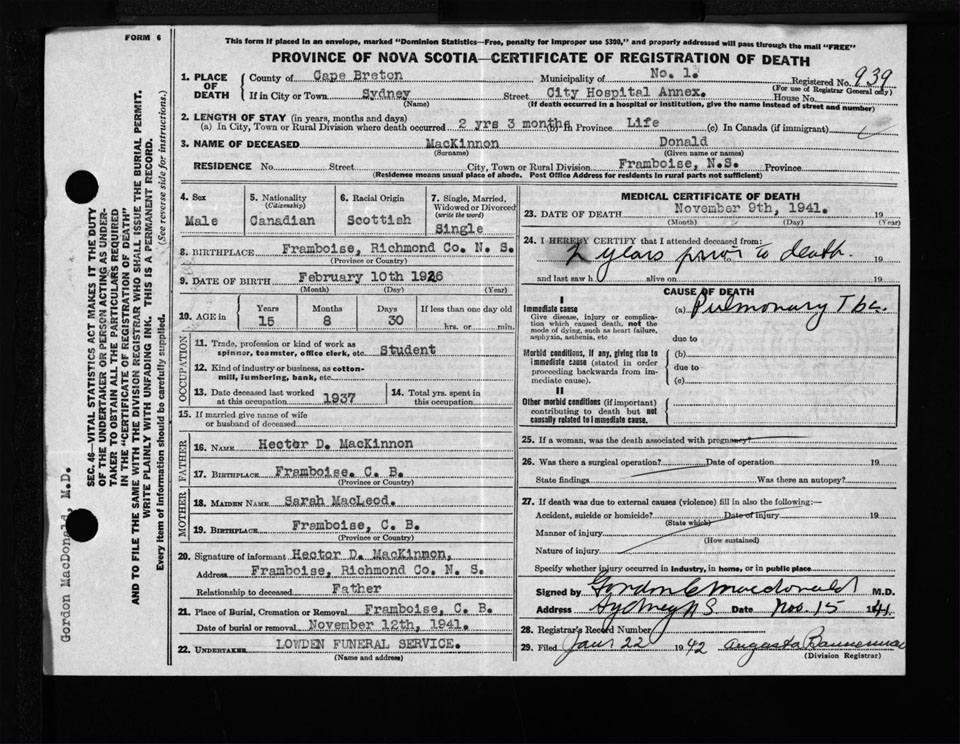 FORM 6
This form if placed in an envelope, marked "Dominion Statistics—Free, penalty for improper use $300," and properly addressed will pass through the mail "FREE"
PROVINCE OF NOVA SCOTIA—CERTIFICATE OF REGISTRATION OF DEATH
1. PLACE OF DEATH
County of Cape Breton Municipality of No. 1. Registered No. 939
(For use of Registrar General only)
If in City or Town Sydney Street City Hospital Annex. House No.
(Name) (If death occurred in a hospital or institution, give the name instead of street and number)
2. LENGTH OF STAY (in years, months and days)
(a) In City, Town or Rural Division where death occurred 2 yrs 3 months (b) In Province Life (c) In Canada (if immigrant)
3. NAME OF DECEASED MacKinnon Donald
(Surname) (Given name or names)
RESIDENCE No. Street City, Town or Rural Division Framboise, N.S. Province
(Residence means usual place of abode. Post Office Address for residents in rural parts not sufficient)
4. Sex
Male
5. Nationality
(Citizenship)
Canadian
6. Racial Origin
Scottish
7. Single, Married, Widowed or Divorced
(write the word)
Single
8. BIRTHPLACE Framboise, Richmond Co. N. S.
(Province or Country)
9. DATE OF BIRTH February 10th 1926
(Month) (Day) (Year)
10. AGE in Years Months Days If less than one day old
15 8 30 hrs. or min.
OCCUPATION
11. Trade, profession or kind of work as
spinner, teamster, office clerk, etc. Student
12. Kind of industry or business, as cotton-
mill, lumbering, bank, etc.
13. Date deceased last worked
at this occupation 1937
14. Total yrs. spent in
this occupation
15. If married give name of wife
or husband of deceased
FATHER
16. NAME Hector D. MacKinnon
17. BIRTHPLACE Framboise, C. B.
(Province or Country)
MOTHER
18. MAIDEN NAME Sarah MacLeod.
19. BIRTHPLACE Framboise, C. B.
(Province or Country)
20. Signature of informant Hector D. MacKinnon,
Address Framboise, Richmond Co. N. S.
Relationship to deceased Father
21. Place of Burial, Cremation or Removal Framboise, C. B.
Date of burial or removal November 12th, 1941.
22. UNDERTAKER LOWDEN FUNERAL SERVICE.
(Name and address)
MEDICAL CERTIFICATE OF DEATH
23. DATE OF DEATH November 9th, 1941. 19
(Month) (Day) (Year)
24. I HEREBY CERTIFY that I attended deceased from:
2 years prior to death.
19 to 19
and last saw h alive on 19
CAUSE OF DEATH
I
Immediate cause
Give disease, injury or complica-
tion which caused death, not the
mode of dying, such as heart failure,
asphyxia, asthenia, etc
(a) Pulmonary Tbc.
due to
Morbid conditions, if any, giving rise to
immediate cause (stated in order
proceeding backwards from im-
mediate cause).
(b)
due to
(c)
II
Other morbid conditions (if important)
contributing to death but not
causally related to immediate cause.
25. If a woman, was the death associated with pregnancy?
26. Was there a surgical operation? Date of operation 19
State findings Was there an autopsy?
27. If death was due to external causes (violence) fill in also the following:—
Accident, suicide or homicide? Date of injury 19
(State which)
Manner of injury
(How sustained)
Nature of injury
Specify whether injury occurred in industry, in home, or in public place
Signed by Gordon C Macdonald M.D.
Address Sydney NS Date Nov. 15 1941.
28. Registrar's Record Number
29. Filed Jan 22 1942 Augusta Bannerman
(Division Registrar)
SEC. 46—VITAL STATISTICS ACT MAKES IT THE DUTY
OF THE UNDERTAKER OR PERSON ACTING AS UNDER-
TAKER TO OBTAIN ALL THE PARTICULARS REQUIRED
IN THE "CERTIFICATE OF REGISTRATION OF DEATH"
AND TO FILE THE SAME WITH THE DIVISION REGISTRAR WHO SHALL ISSUE THE BURIAL PERMIT.
WRITE PLAINLY WITH UNFADING INK. THIS IS A PERMANENT RECORD.
Every item of information should be carefully supplied. (See reverse side for instructions.)
Gordon MacDonald, M.D.